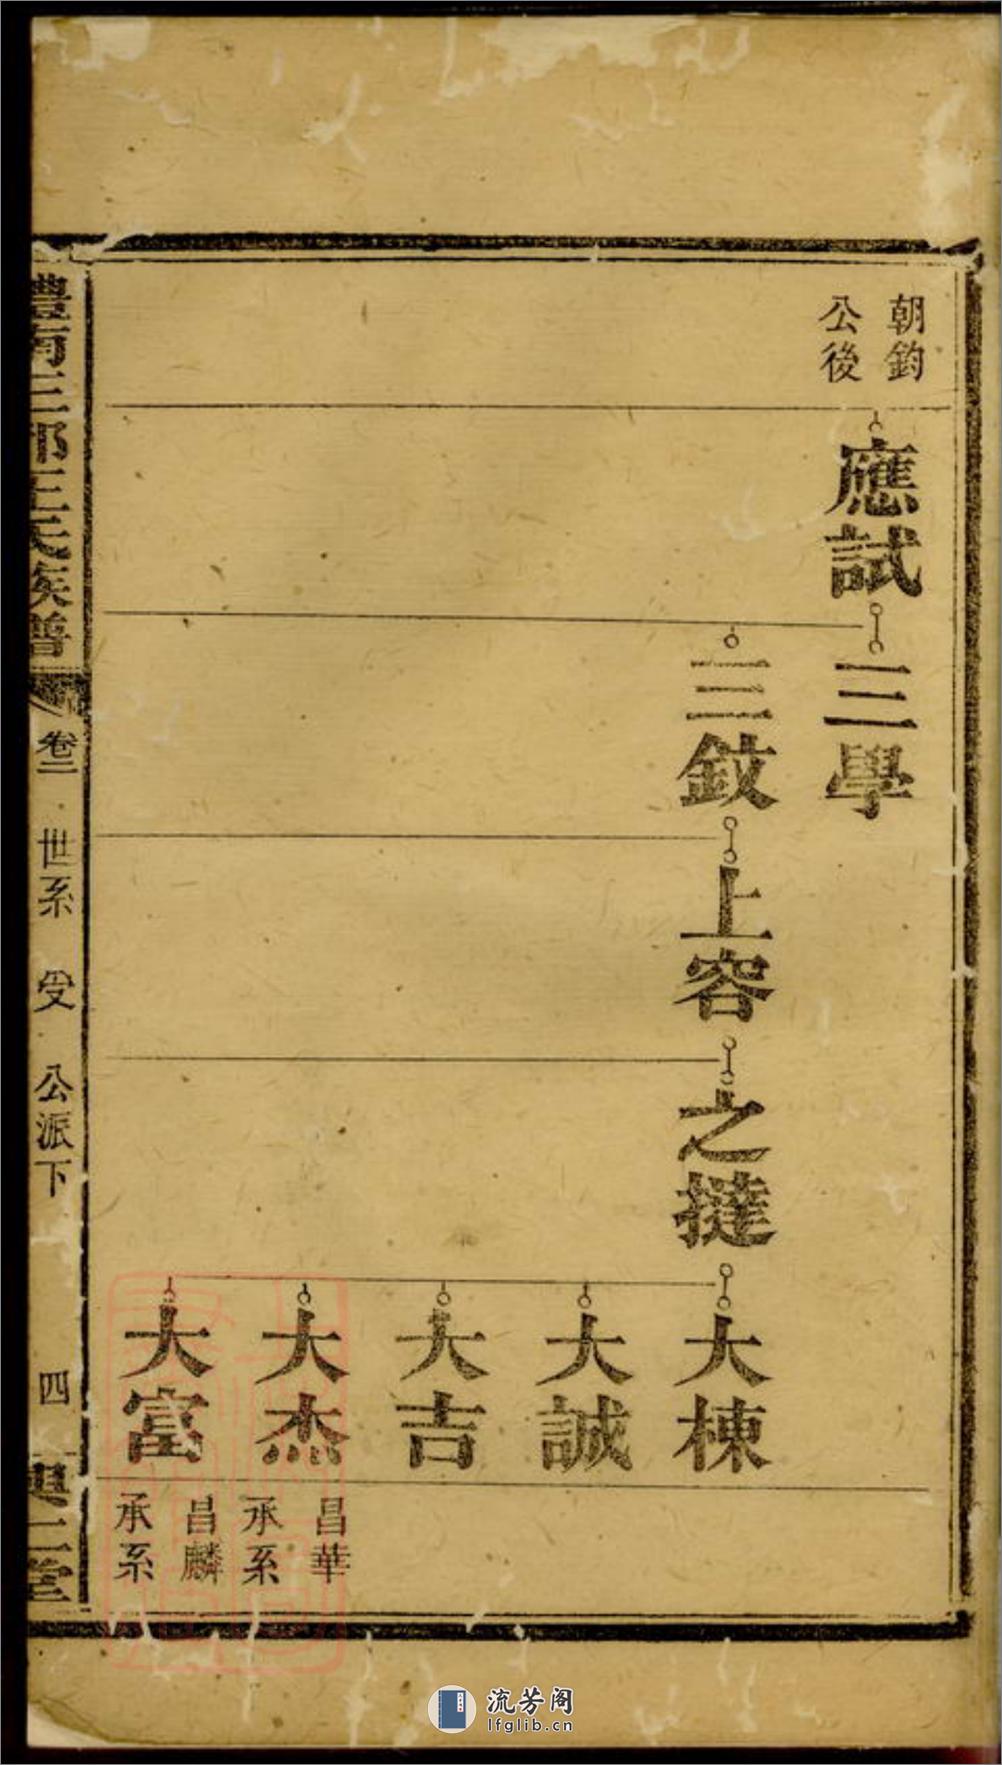 朝鈞
公後
應試
三學
三鈫
上容
之撻
大棟
大誠
大吉
大杰
大富
昌華
承系
昌麟
承系
澧南三都王氏族譜
卷二
世系
受
公派下
四
興仁堂
流芳阁
lfglib.cn